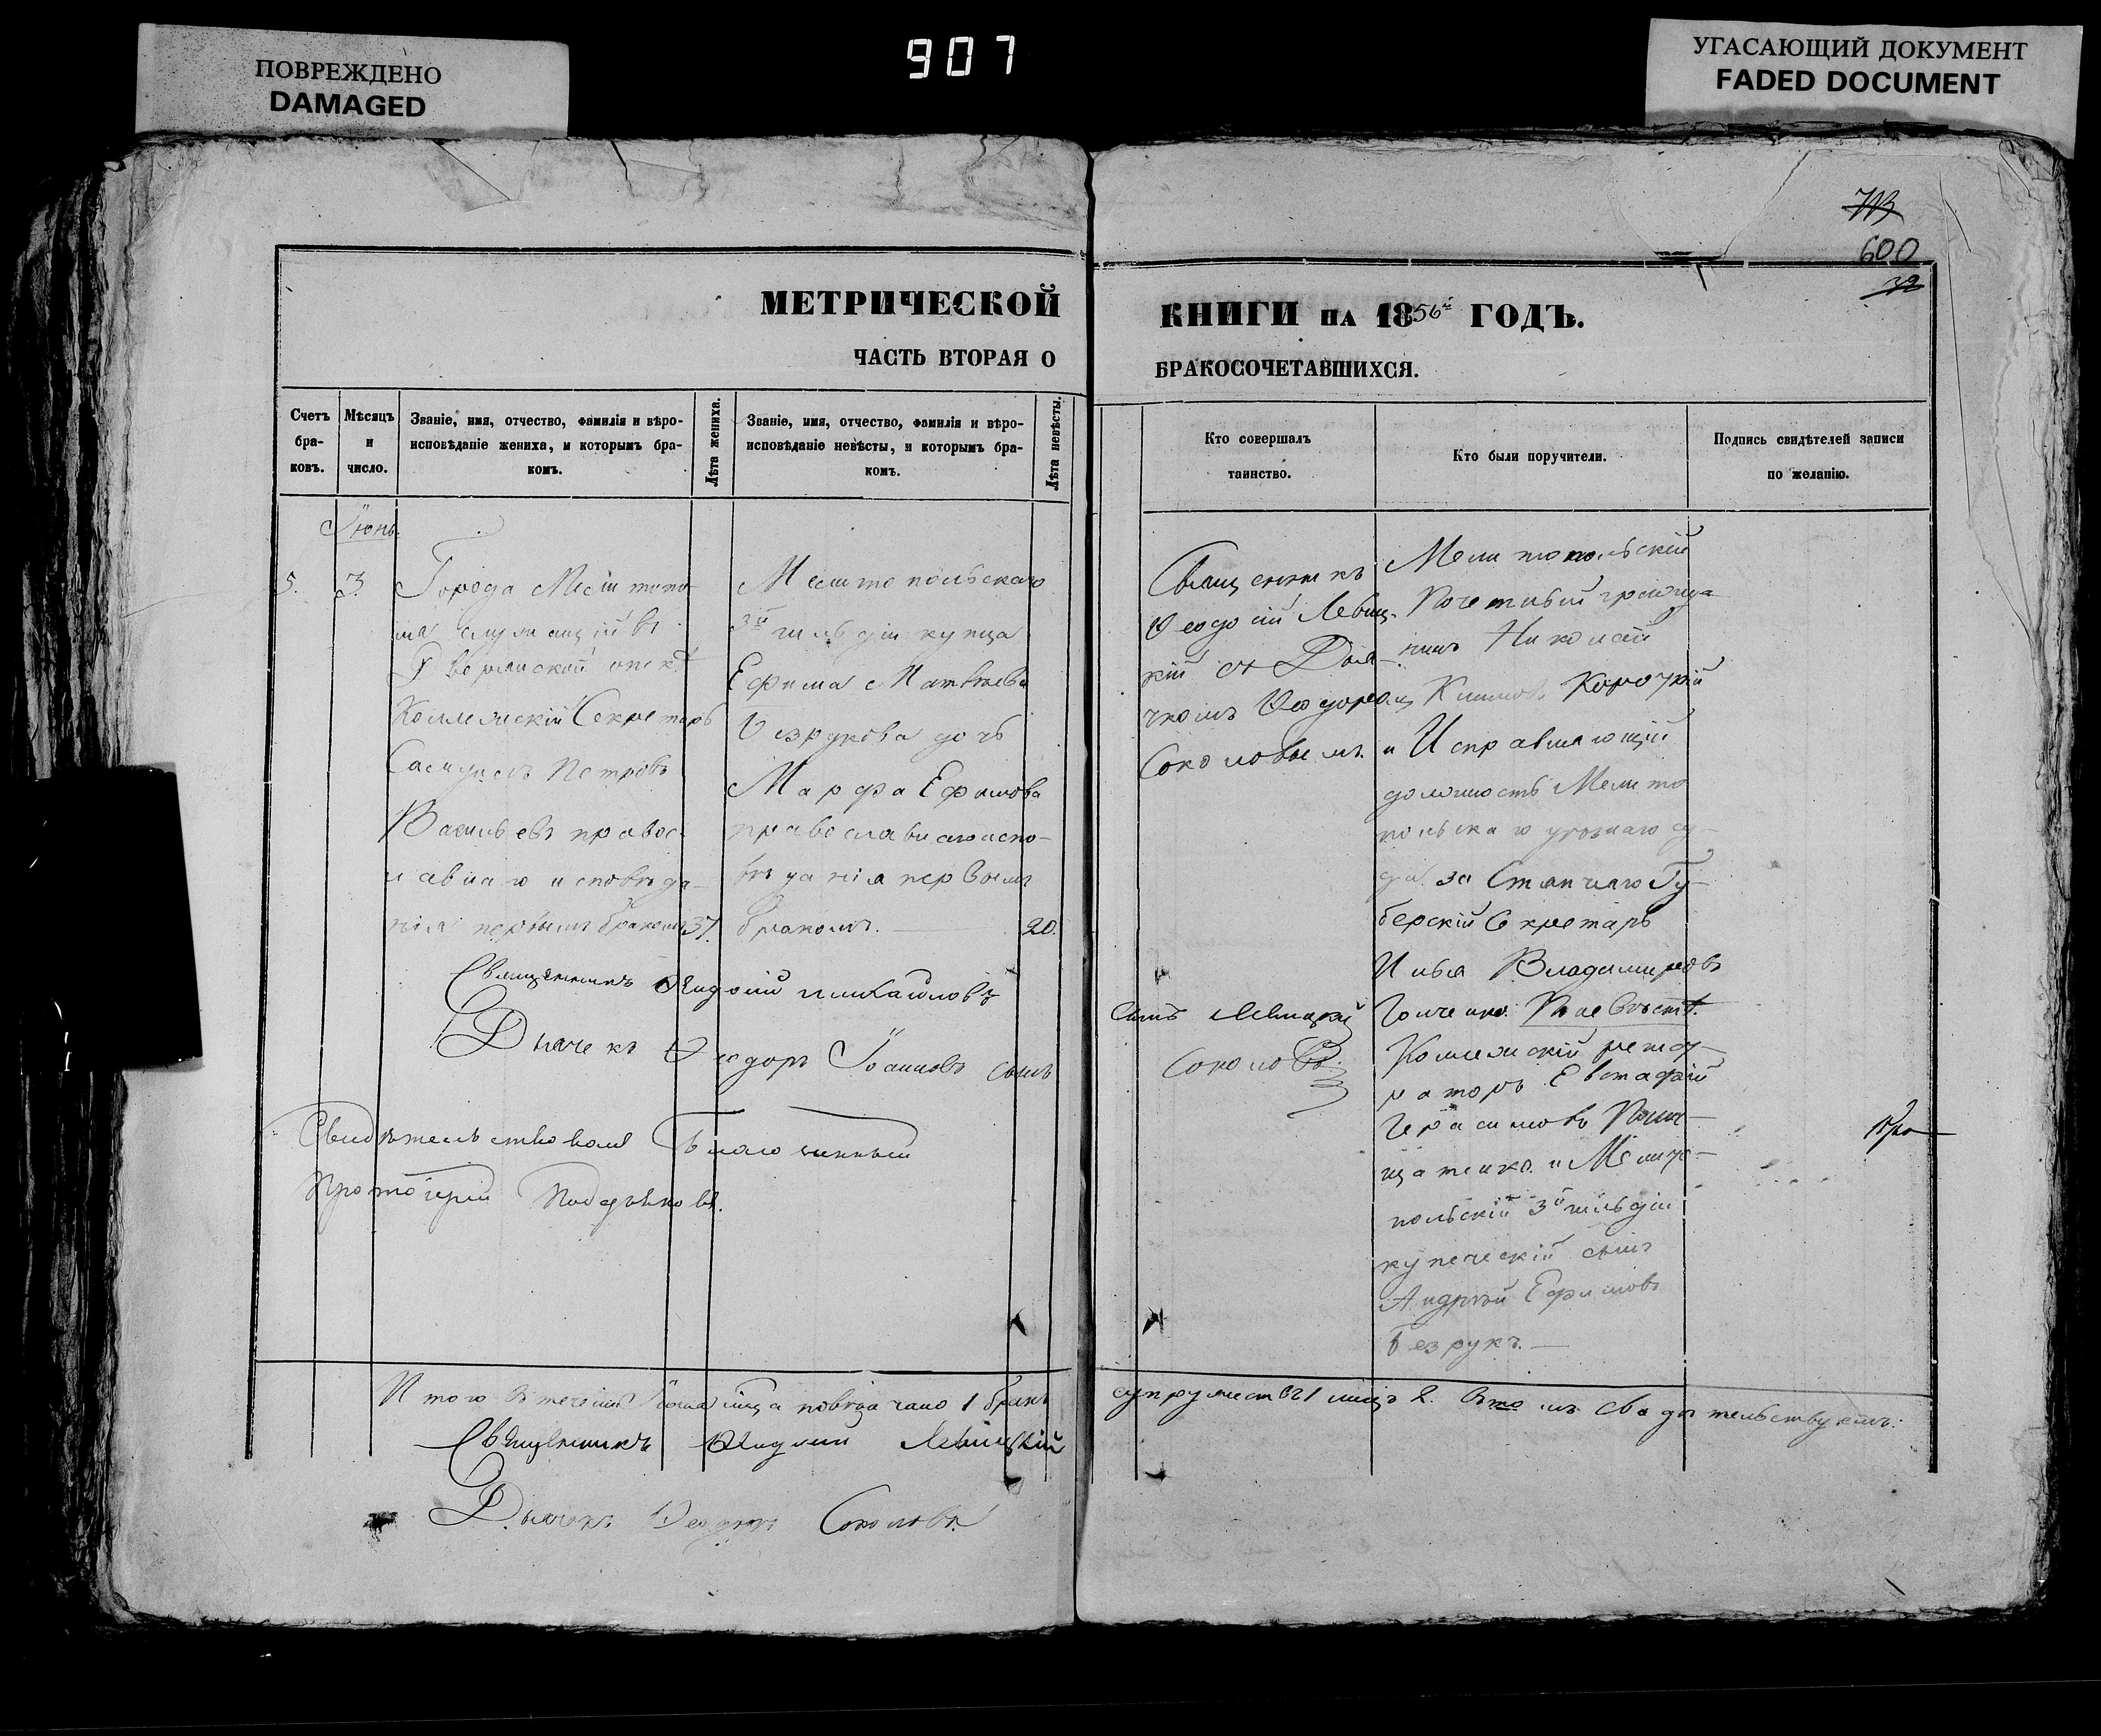 ПОВРЕЖДЕНО
DAMAGED
907
УГАСАЮЩИЙ ДОКУМЕНТ
FADED DOCUMENT
713
600
32
МЕТРИЧЕСКОЙ
КНИГИ НА 1856й ГОДЪ.
ЧАСТЬ ВТОРАЯ О
БРАКОСОЧЕТАВШИХСЯ.
Счетъ
бра-
ковъ.
Мѣсяцъ
и
число.
Званіе, имя, отчество, фамилія и вѣро-
исповѣданіе жениха, и которымъ бра-
комъ.
Лѣта жениха.
Званіе, имя, отчество, фамилія и вѣро-
исповѣданіе невѣсты, и которымъ бра-
комъ.
Лѣта невѣсты.
Кто совершалъ
таинство.
Кто были поручители.
Подпись свидѣтелей записи
по желанію.
Іюнь.
5.
3.
Города Мелитопо-
ля служащій въ
Дворянской опекѣ
Коллежскій Секретарь
Самуилъ Петровъ
Васильевъ правос-
лавнаго исповѣда-
нія первымъ бракомъ
37.
Мелитопольскаго
3й гильдіи купца
Ефима Матвѣева
Безрукова дочь
Марфа Ефимова
православнаго испо-
вѣданія первымъ
бракомъ.
20.
Священникъ
Ѳеодосій Левиц-
кій съ Дья-
чкомъ Ѳеодоромъ
Соколовымъ.
Мелитопольскій
Почетный гражда-
нинъ Николай
Климовъ
и Исправляющій
должность Мелито
польскаго уѣзднаго су-
да за Стряпчаго Гу-
берскій Секретарь
Илья Владимировъ
По невѣстѣ.
Коллежскій регист-
раторъ Евстафій
Герасимовъ
и Мелито-
польскій 3й гильдіи
купеческій сынъ
Андрей Ефимовъ
Безрукъ.
Священникъ Ѳеодосій Михайловъ
сынъ Левицкій
Дьячекъ Ѳеодоръ Іоанновъ сынъ
Соколовъ.
Свидѣтельствовалъ Благочинный
Протоіерей
Итого въ теченіи Іюня м-ца повѣнчано 1 бракъ
супружествъ 1 лицъ 2. Въ томъ свидѣтельствуемъ:
Священникъ Ѳеодосій Левицкій
Дьячекъ Ѳеодоръ Соколовъ